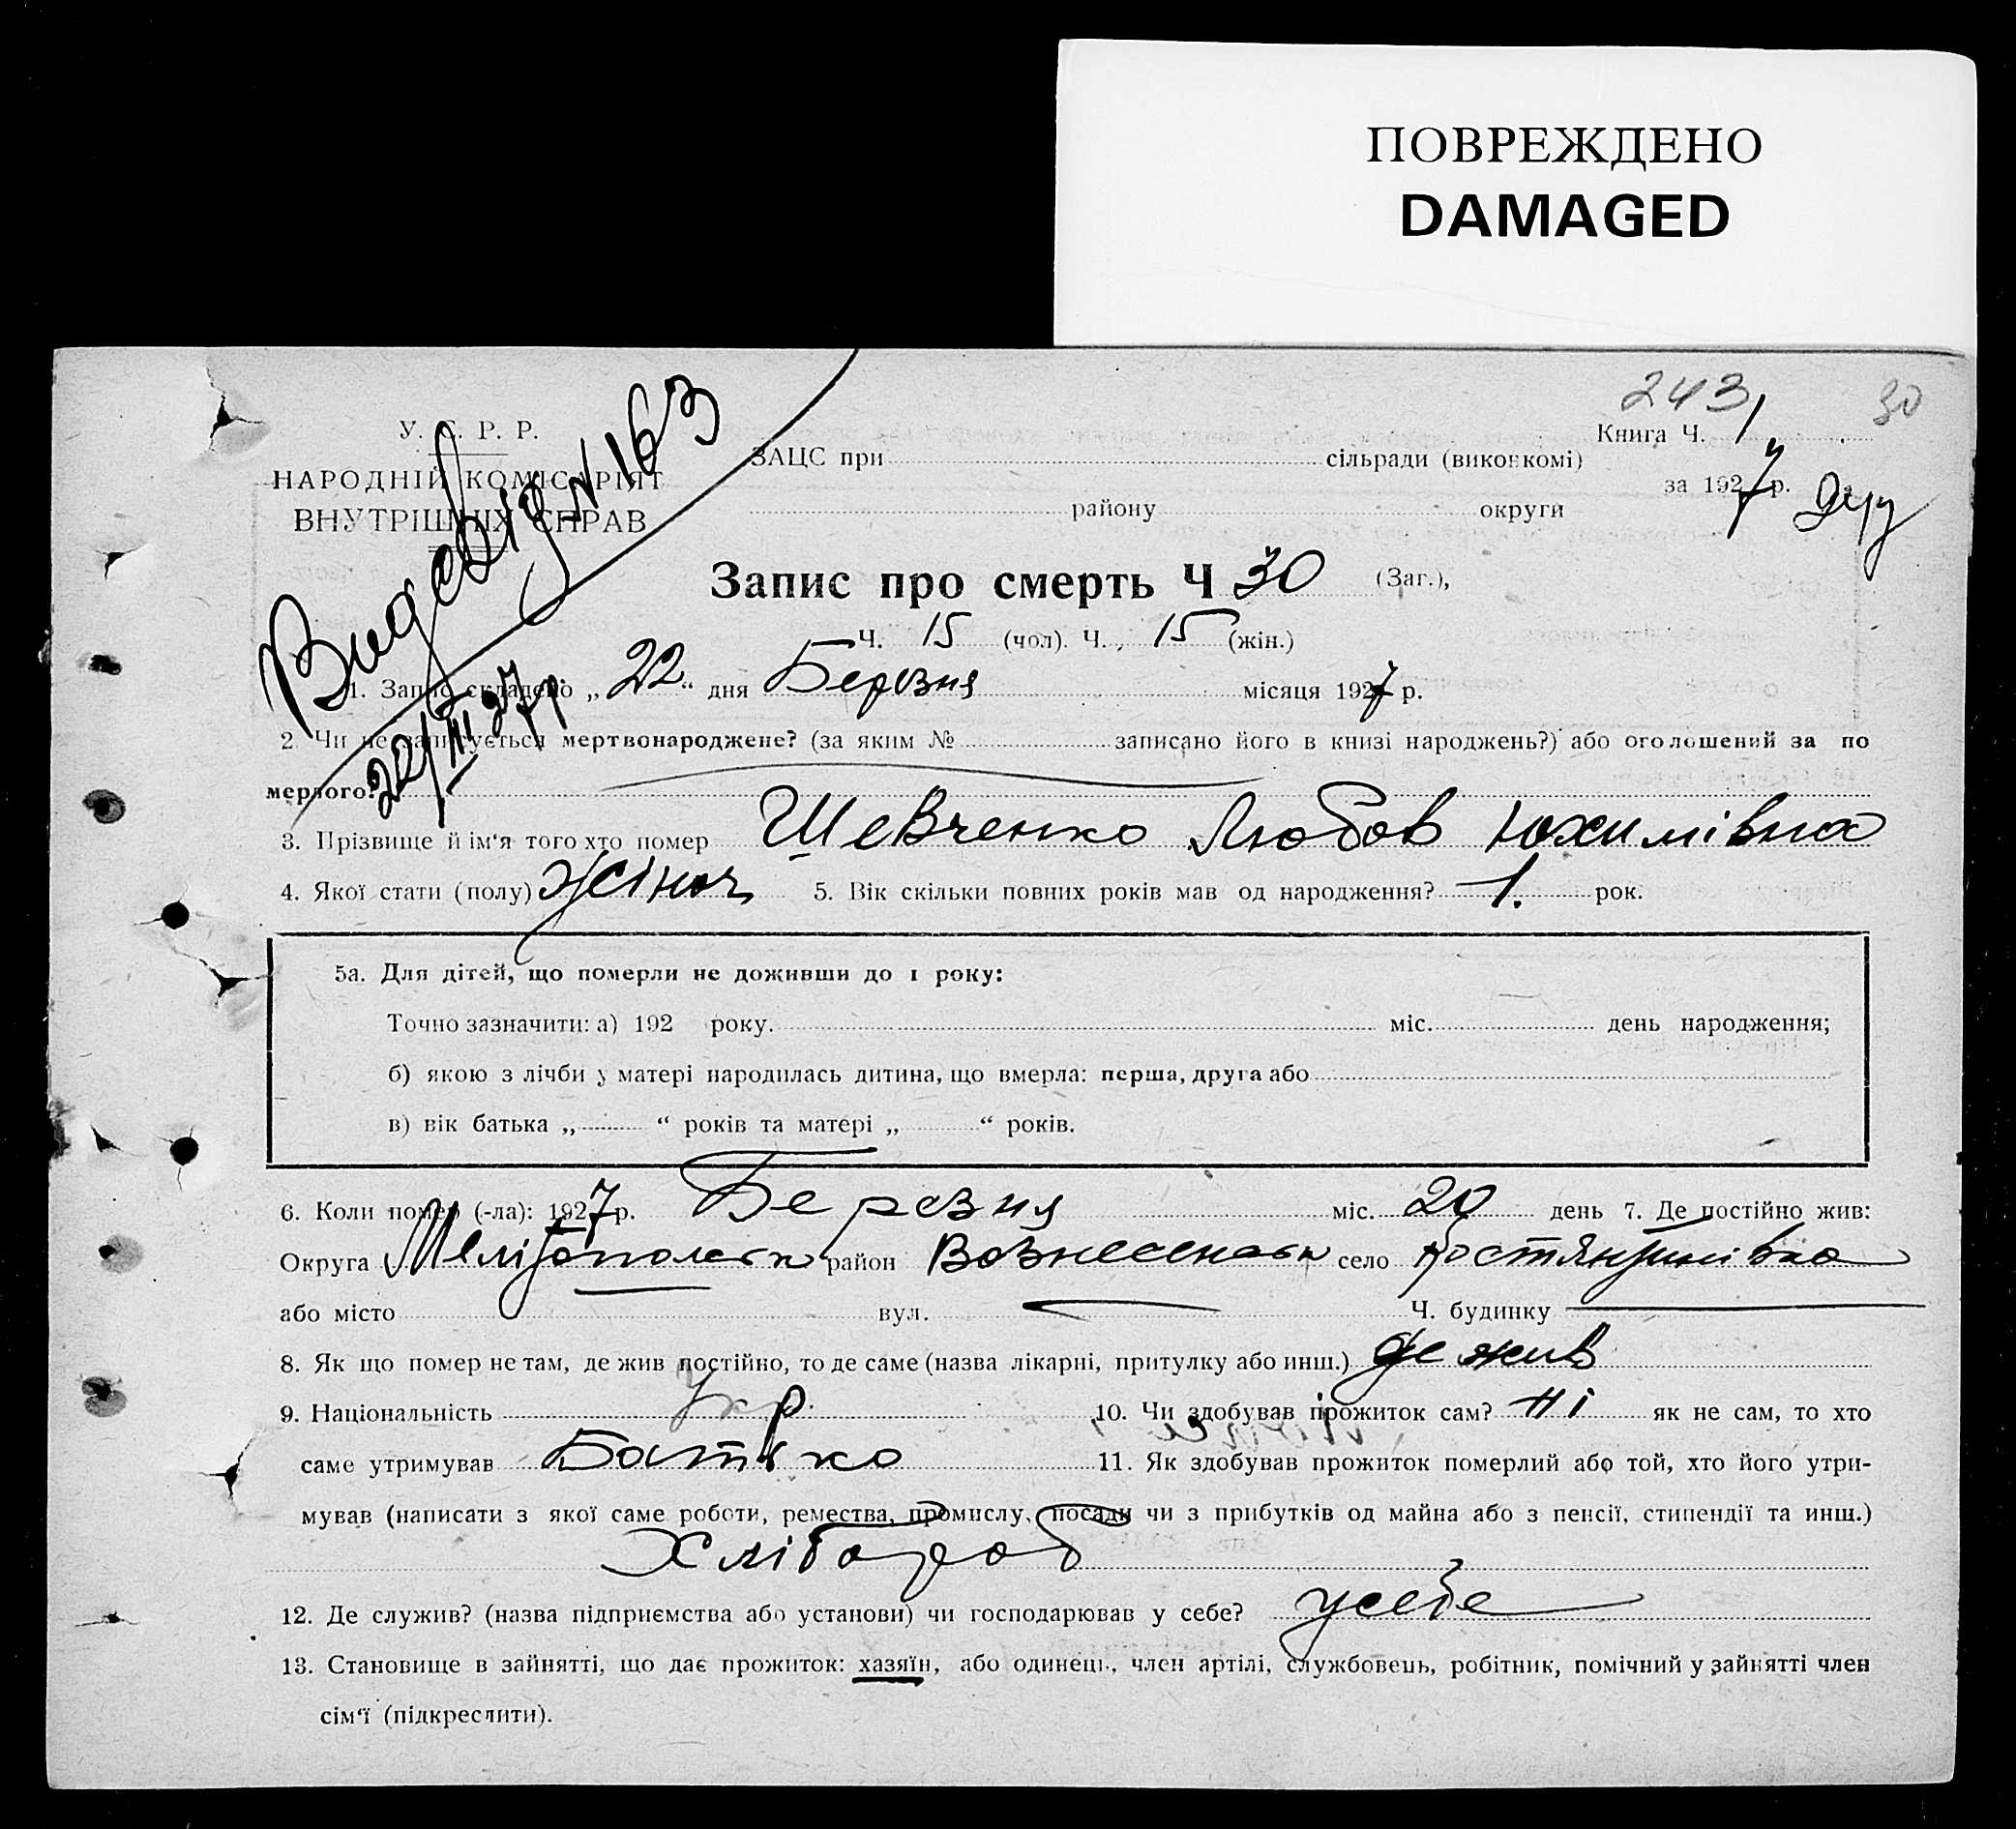 ПОВРЕЖДЕНО
DAMAGED
243 30
У. С. Р. Р.
НАРОДНІЙ КОМІСАРІЯТ
ВНУТРІШНІХ СПРАВ
Книга Ч. 1
ЗАЦС при сільради (виконкомі)
за 1927 р.
району округи
№ 163
22/III 27 р.
Запис про смерть Ч 30 (Заг.),
Ч. 15 (чол). Ч. 15 (жін.)
1. Запис складено „ 22 “ дня Березня місяця 1927 р.
2. Чи не записується мертвонароджене? (за яким № записано його в книзі народжень?) або оголошений за по
мерлого?
3. Прізвище й ім'я того хто помер Шевченко Любов Юхимівна
4. Якої стати (полу) жіноч 5. Вік скільки повних років мав од народження? 1. рок.
5а. Для дітей, що померли не доживши до 1 року:
Точно зазначити: а) 192 року. міс. день народження;
б) якою з лічби у матері народилась дитина, що вмерла: перша, друга або
в) вік батька „ “ років та матері „ “ років.
6. Коли помер (-ла): 1927 р. Березня міс. 20 день 7. Де постійно жив:
Округа Мелітопольск район Вознесенськ село Костянтинівка
або місто вул. Ч. будинку
8. Як що помер не там, де жив постійно, то де саме (назва лікарні, притулку або инш.) де жив
9. Національність Укр. 10. Чи здобував прожиток сам? ні як не сам, то хто
саме утримував Батько 11. Як здобував прожиток померлий або той, хто його утри-
мував (написати з якої саме роботи, ремества, промислу, посади чи з прибутків од майна або з пенсії, стипендії та инш.)
Хлібороб
12. Де служив? (назва підприємства або установи) чи господарював у себе? у себе
13. Становище в зайнятті, що дає прожиток: хазяїн, або одинець, член артілі, службовець, робітник, помічний у зайнятті член
сім'ї (підкреслити).